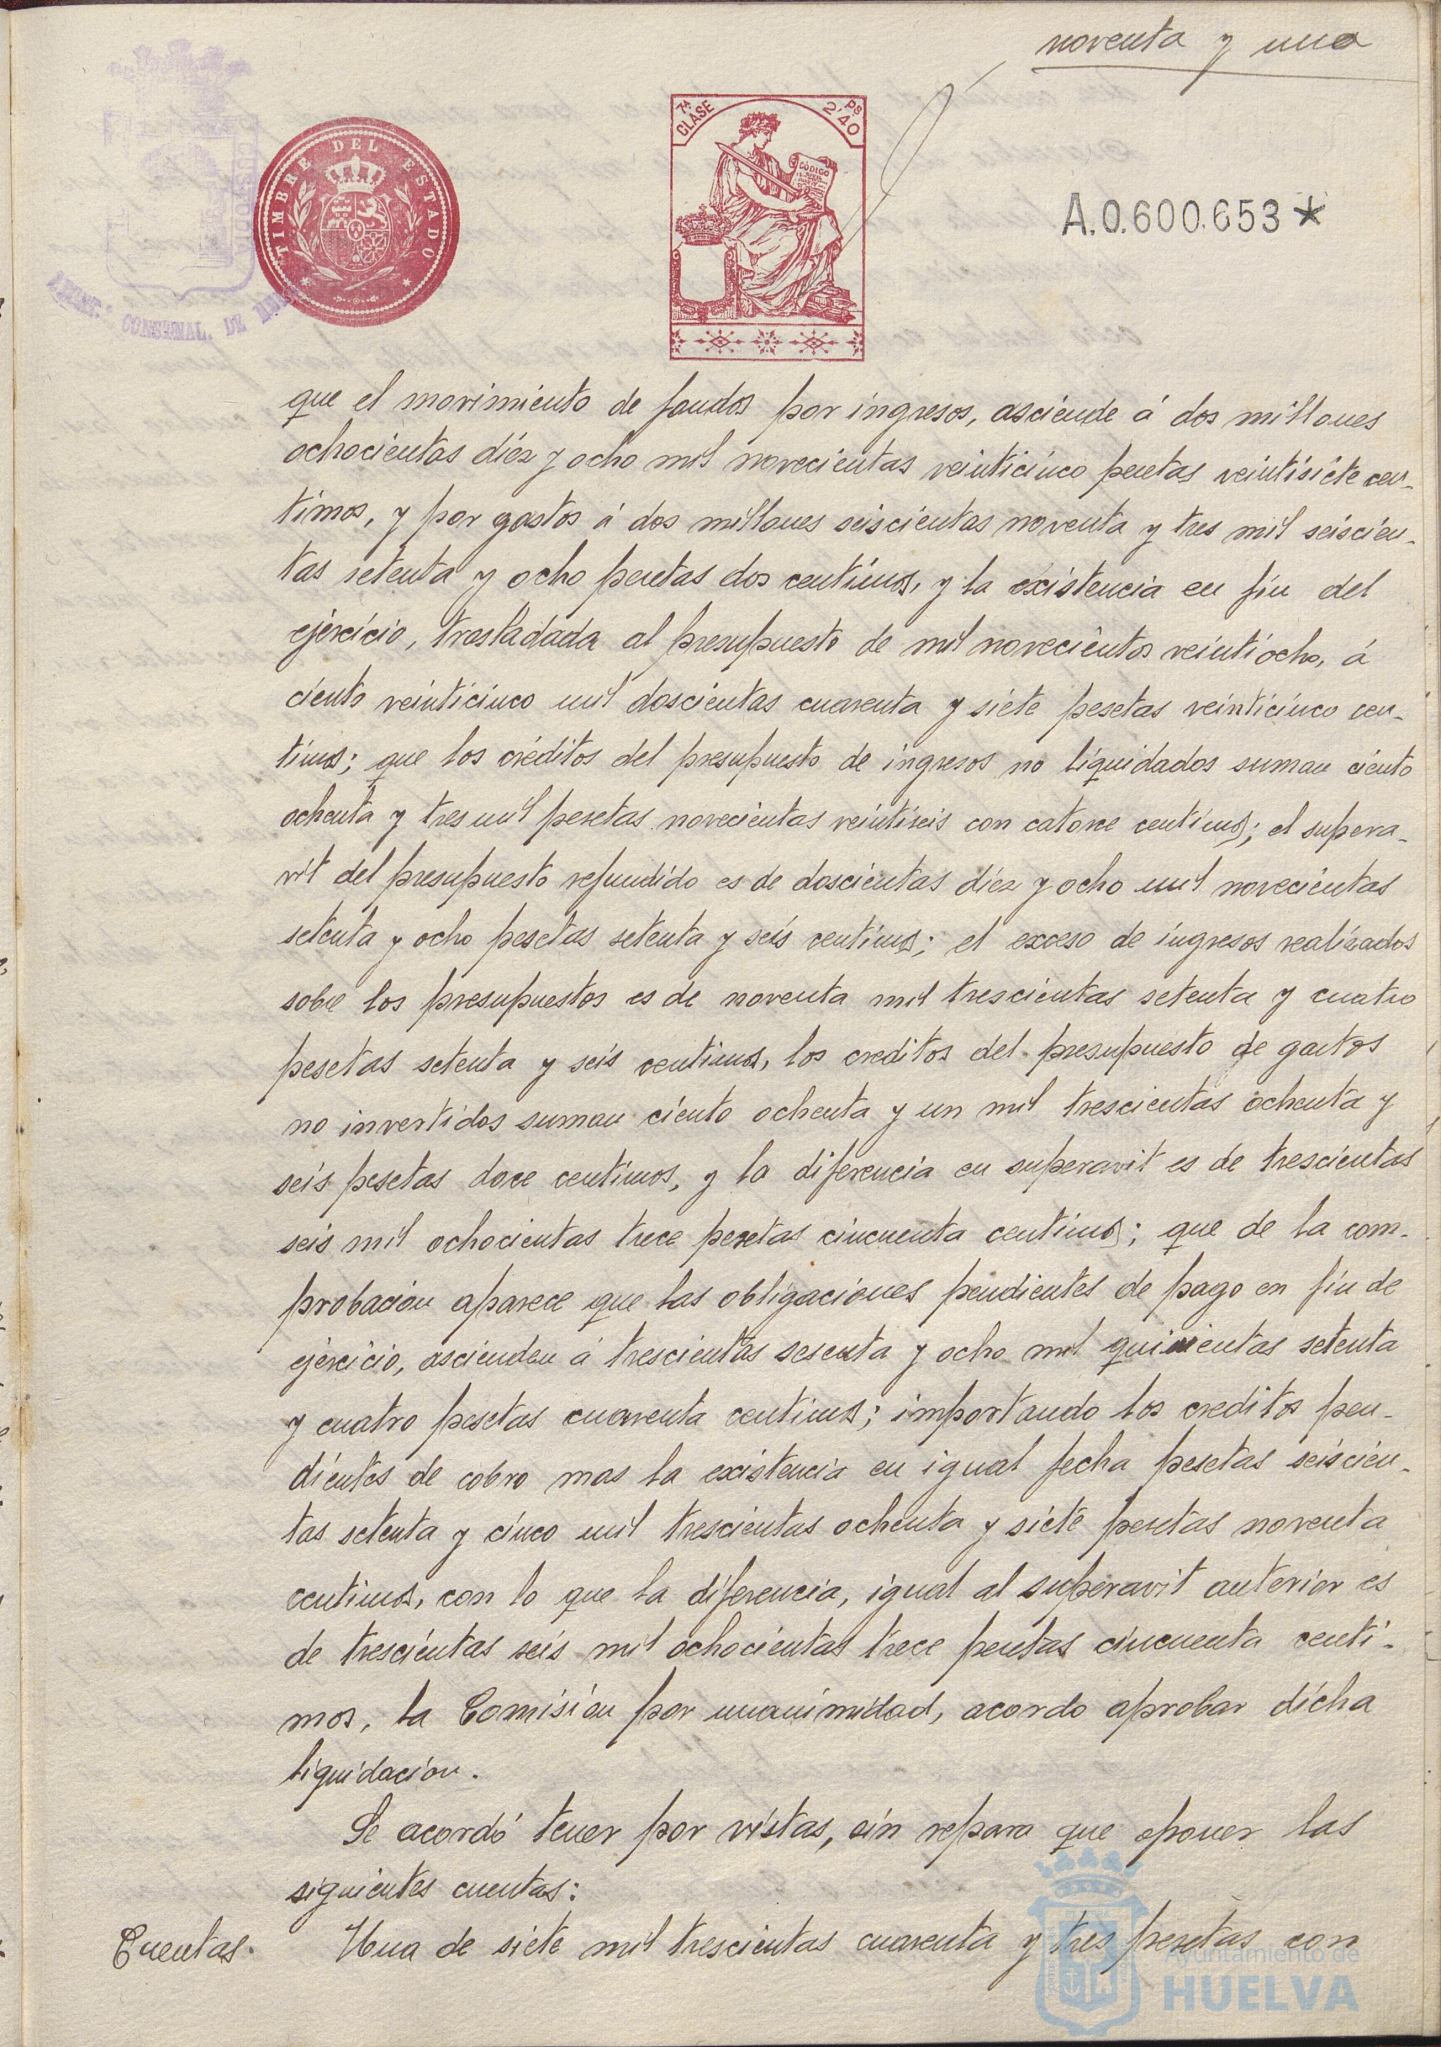 noventa y una
7ª CLASE
2'40 Ps
CÓDIGO
TIMBRE DEL ESTADO
A.0.600.653*
CONSTNAL. DE
que el movimiento de fondos por ingresos, asciende á dos millones
ochocientas diéz y ocho mil novecientas veinticinco pesetas veintisiete cen-
timos, y por gastos á dos millones seiscientas noventa y tres mil seiscien-
tas setenta y ocho pesetas dos centimos, y la existencia en fin del
ejercicio, trasladada al presupuesto de mil novecientos veintiocho, á
ciento veinticinco mil doscientas cuarenta y siete pesetas veinticinco cen-
timos; que los créditos del presupuesto de ingresos no liquidados suman ciento
ochenta y tres mil pesetas novecientas veintiseis con catorce centimos; el supera-
vit del presupuesto refundido es de doscientas diéz y ocho mil novecientas
setenta y ocho pesetas setenta y seis centimos; el exceso de ingresos realizados
sobre los presupuestos es de noventa mil trescientas setenta y cuatro
pesetas setenta y seis centimos, los creditos del presupuesto de gastos
no invertidos suman ciento ochenta y un mil trescientas ochenta y
seis pesetas doce centimos, y la diferencia en superavit es de trescientas
seis mil ochocientas trece pesetas cincuenta centimos; que de la com-
probación aparece que las obligaciones pendientes de pago en fin de
ejercicio, ascienden á trescientas sesenta y ocho mil quinientas setenta
y cuatro pesetas cuarenta centimos; importando los creditos pen-
dientes de cobro mas la existencia en igual fecha pesetas seiscien-
tas setenta y cinco mil trescientas ochenta y siete pesetas noventa
centimos, con lo que la diferencia, igual al superavit anterior es
de trescientas seis mil ochocientas trece pesetas cincuenta centi-
mos, la Comisión por unanimidad, acordo aprobar dicha
liquidación.
Se acordó tener por vistas, sin reparo que oponer las
siguientes cuentas:
Cuentas. Una de siete mil trescientas cuarenta y tres pesetas con
Ayuntamiento de
HUELVA